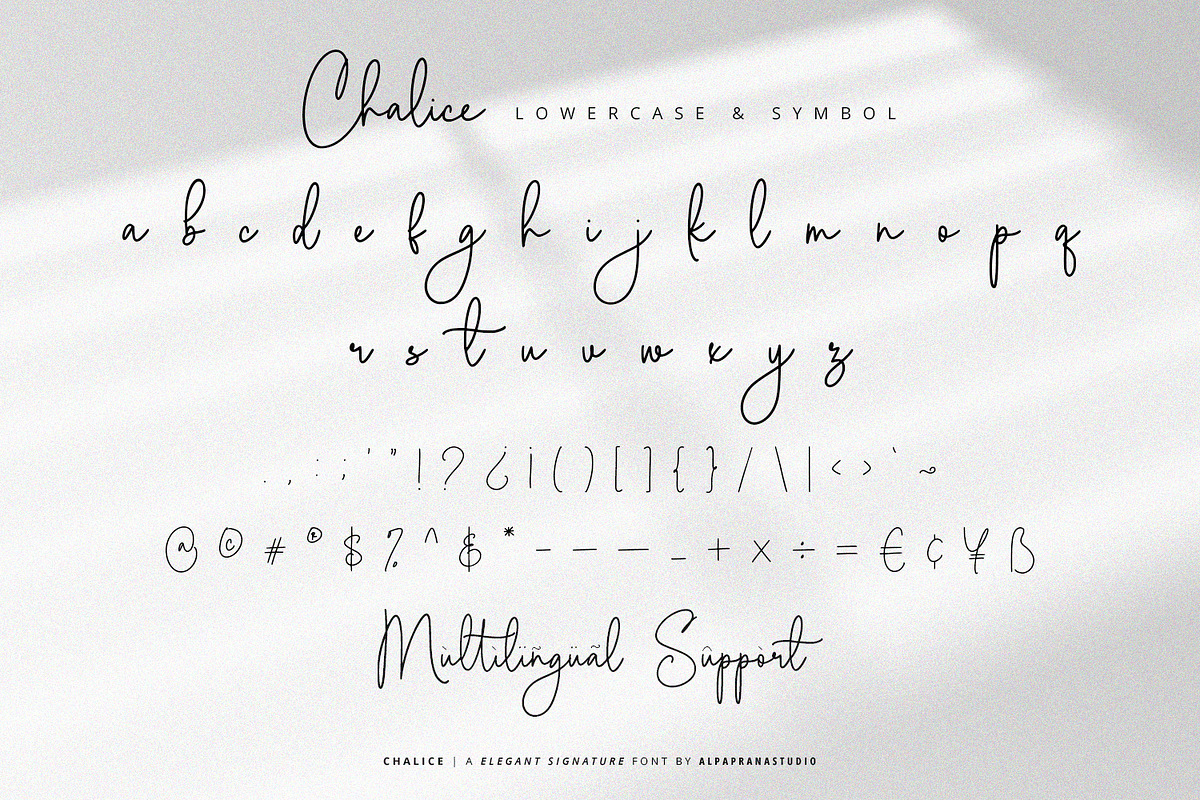 Chalice LOWERCASE & SYMBOL
a b c d e f g h i j k l m n o p q
r s t u v w x y z
. , : ; ' " ! ? ¿ ¡ ( ) [ ] { } / \ | < > ` ~
@ © # ® $ % ^ & * - – — _ + × ÷ = € ¢ ¥ ß
Mùltìlïñgüãl Sûppòrt
CHALICE | A ELEGANT SIGNATURE FONT BY ALPAPRANASTUDIO